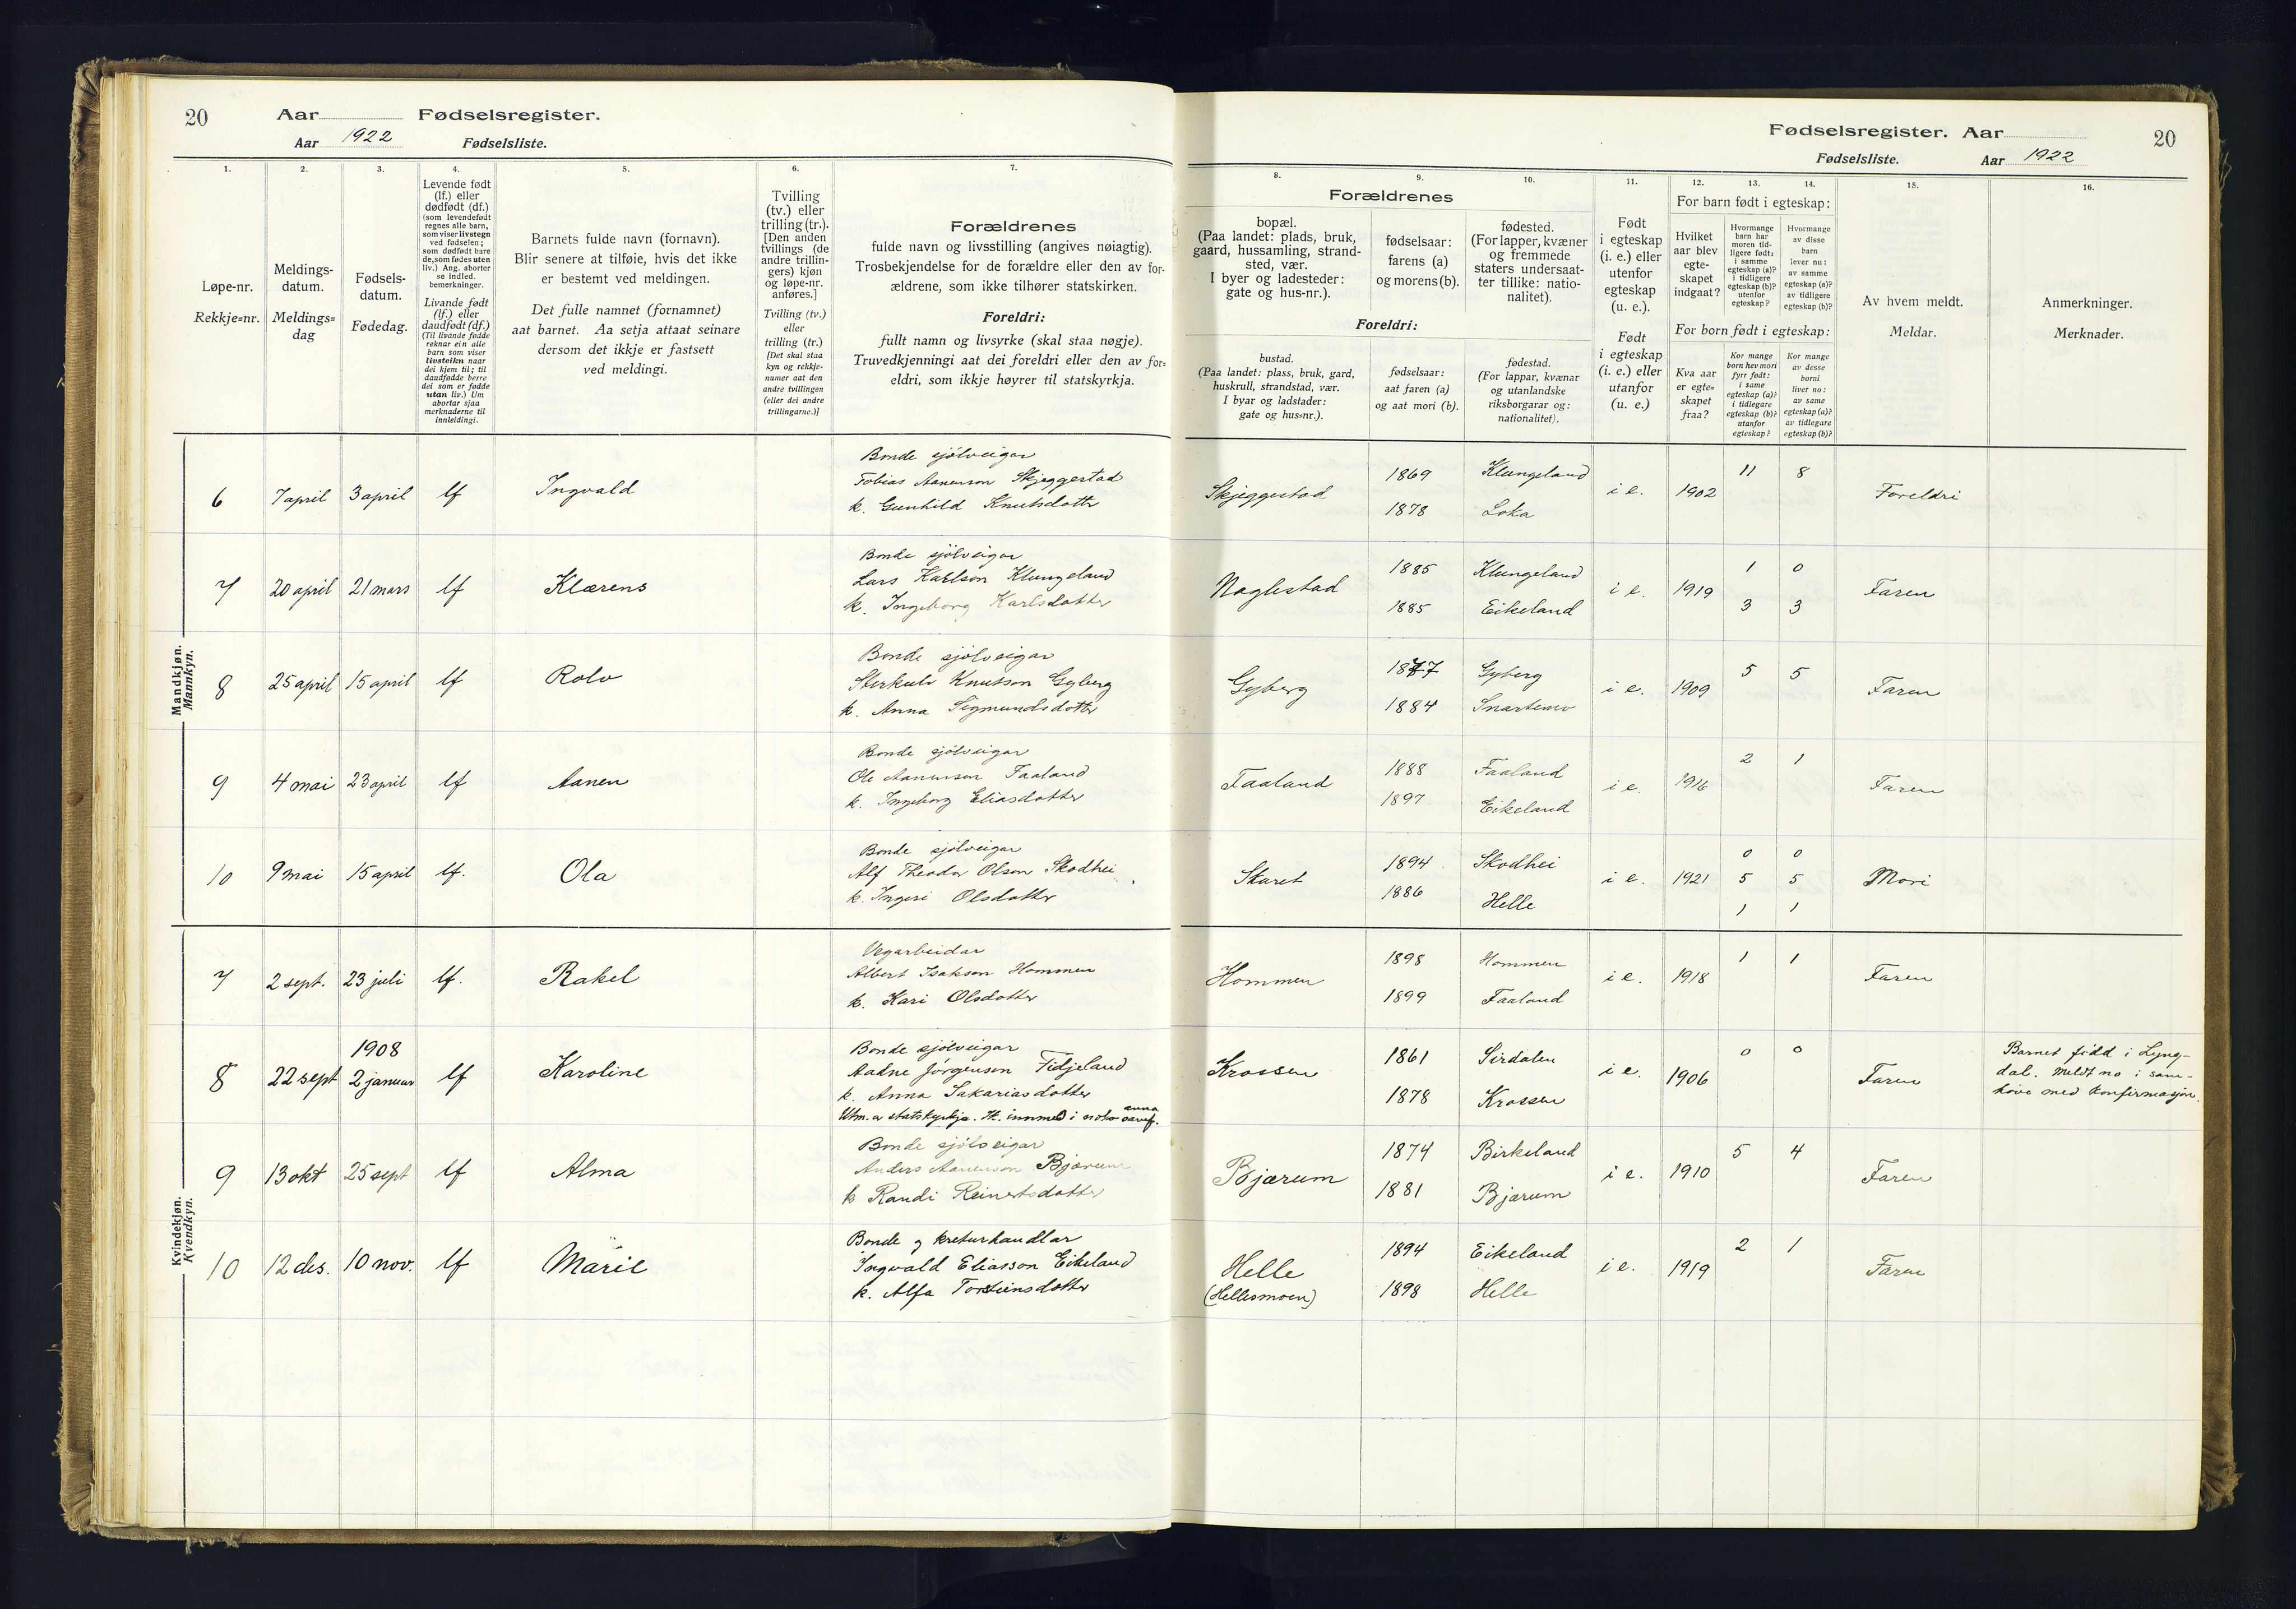 20
Aar
Fødselsregister.
Aar 1922
Fødselsliste.
1.
Løpe-nr.
Rekkje=nr.
2.
Meldings-
datum.
Meldings=
dag
3.
Fødsels-
datum.
Fødedag.
4.
Levende født
(lf.) eller
dødfødt (df.)
(som levendefødt
regnes alle barn,
som viser livstegn
ved fødselen;
som dødfødt bare
de, som fødes uten
liv.) Ang. aborter
se indled.
bemerkninger.
Livande født
(lf.) eller
daudfødt (df.)
(Til livande fødde
reknar ein alle
barn som viser
livsteikn naar
dei kjem til; til
daudfødde berre
dei som er fødde
utan liv.) Um
abortar sjaa
merknaderne til
innleidingi.
5.
Barnets fulde navn (fornavn).
Blir senere at tilføie, hvis det ikke
er bestemt ved meldingen.
Det fulle namnet (fornamnet)
aat barnet. Aa setja attaat seinare
dersom det ikkje er fastsett
ved meldingi.
6.
Tvilling
(tv.) eller
trilling (tr.).
[Den anden
tvillings (de
andre trillin-
gers) kjøn
og løpe-nr.
anføres.]
Tvilling (tv.)
eller
trilling (tr.)
[Det skal staa
kyn og rekkje-
numer aat den
andre tvillingen
(eller dei andre
trillingarne.)]
7.
Forældrenes
fulde navn og livsstilling (angives nøiagtig).
Trosbekjendelse for de forældre eller den av for-
ældrene, som ikke tilhører statskirken.
Foreldri:
fullt namn og livsyrke (skal staa nøgje).
Truvedkjenningi aat dei foreldri eller den av for=
eldri, som ikkje høyrer til statskyrkja.
Mandkjøn.
Mannkyn.
6 7 april 3 april lf Ingvald
Bonde sjölveigar
Tobias Aanenson Skjeggestad
k. Gunhild Knutsdotter
7 20 april 21 mars lf Klærens
Bonde sjölveigar
Lars Karlson Klungeland
k. Ingeborg Karlsdotter
8 25 april 15 april lf Rolv
Bonde sjölveigar
Sterkulv Knutson Gyberg
k. Anna Sigmundsdotter
9 4 mai 23 april lf Aanen
Bonde sjölveigar
Ole Aanenson Faaland
k. Ingeborg Eliasdotter
10 9 mai 15 april lf. Ola
Bonde sjölveigar
Alf Theodor Olson Skodhei
k. Ingeri Olsdotter
Kvindekjøn.
Kvendkyn.
7 2 sept. 23 juli lf. Rakel
Vegarbeidar
Albert Isakson Hommen
k. Kari Olsdotter
8 22 sept 1908 2 januar lf Karoline
Bonde sjölveigar
Aadne Jörgenson Tidjeland
k. Anna Sakariasdotter
Utm. av statskyrkja.
9 13 okt 25 sept lf Alma
Bonde sjölveigar
Anders Aanenson Bjærum
k Randi Reinertsdotter
10 12 des. 10 nov. lf Marie
Bonde og kreturhandlar
Ingvald Eliasson Eikeland
k. Alfa Torsteinsdotter
Fødselsregister. Aar
20
Fødselsliste.
Aar 1922
8.
Forældrenes
bopæl.
(Paa landet: plads, bruk,
gaard, hussamling, strand-
sted, vær.
I byer og ladesteder:
gate og hus-nr.).
Foreldri:
bustad.
(Paa landet: plass, bruk, gard,
huskrull, strandstad, vær.
I byar og ladstader:
gate og hus=nr.).
9.
fødselsaar:
farens (a)
og morens (b).
fødselsaar:
aat faren (a)
og aat mori (b).
10.
fødested.
(For lapper, kvæner
og fremmede
staters undersaat-
ter tillike: natio-
nalitet).
fødestad.
(For lappar, kvænar
og utanlandske
riksborgarar og:
nationalitet).
11.
Født
i egteskap
(i. e.) eller
utenfor
egteskap
(u. e.).
Født
i egteskap
(i. e.) eller
utanfor
(u. e.)
12.
For barn født i egteskap:
Hvilket
aar blev
egte-
skapet
indgaat?
For born født i egteskap:
Kva aar
er egte=
skapet
fraa?
13.
Hvormange
barn har
moren tid-
ligere født:
i samme
egteskap (a)?
i tidligere
egteskap (b)?
utenfor
egteskap?
Kor mange
born hev mori
fyrr født:
i same
egteskap (a)?
i tidlegare
egteskap (b)?
utanfor
egteskap?
14.
Hvormange
av disse
barn
lever nu:
av samme
egteskap (a)?
av tidligere
egteskap (b)?
Kor mange
av desse
borni
liver no:
av same
egteskap (a)?
av tidlegare
egteskap (b)?
15.
Av hvem meldt.
Meldar.
16.
Anmerkninger.
Merknader.
Skjeggestad 1869 Klungeland i e. 1902 11 8 Foreldri
1878 Loka
Naglestad 1885 Klungeland i e. 1919 1 0 Faren
1885 Eikeland 3 3
Gyberg 1877 Gyberg i e. 1909 5 5 Faren
1884 Snartemo
Faaland 1888 Faaland i e. 1916 2 1 Faren
1897 Eikeland
Skaret 1894 Skodhei i e. 1921 0 0 Mori
1886 Helle 5 5
1 1
Hommen 1898 Hommen i e. 1918 1 1 Faren
1899 Faaland
Krossen 1861 Sirdalen i e. 1906 0 0 Faren
1878 Krossen
Barnet född i Lyng-
dal. Meldt no i sam-
höve med konfirmasjon.
Bjærum 1874 Birkeland i e. 1910 5 4 Faren
1881 Bjærum
Helle 1894 Eikeland i e. 1919 2 1 Faren
(Hellesmoen) 1898 Helle